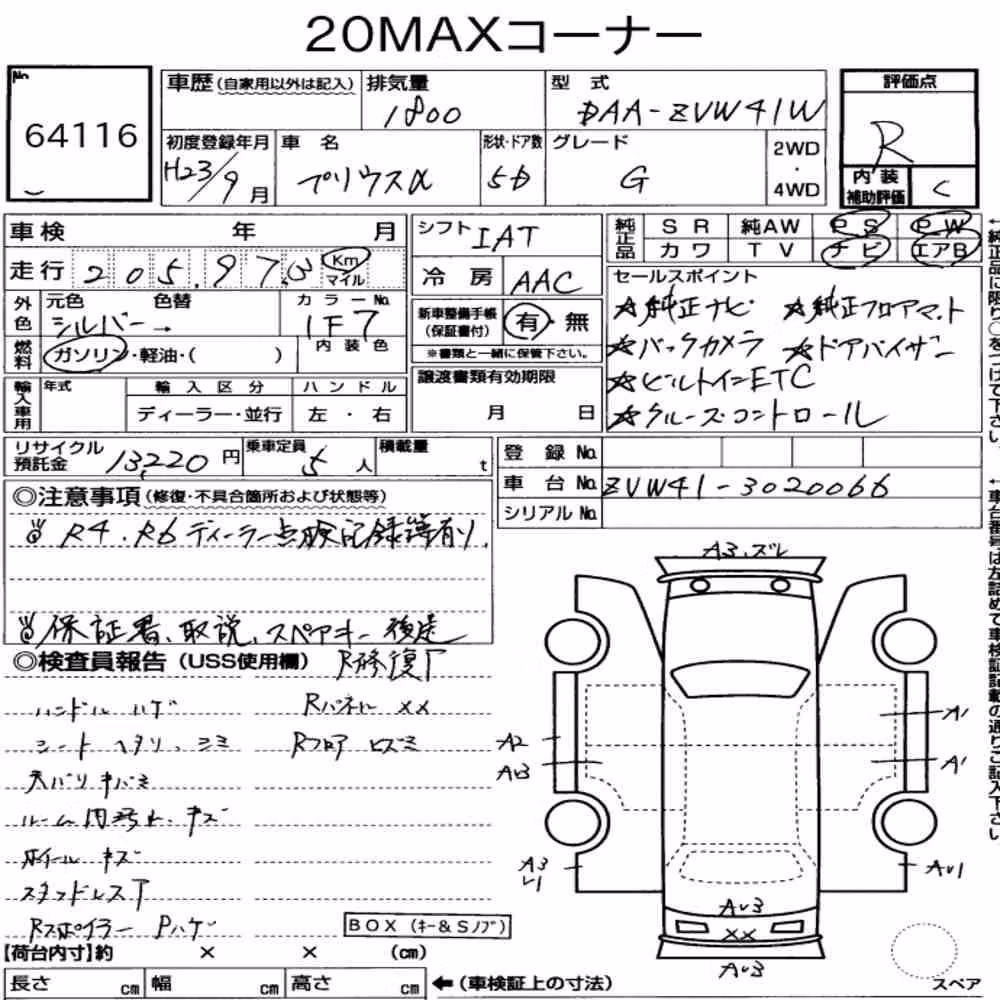 20MAXコーナー
No.
64116
車歴(自家用以外は記入)
排気量
1800
型式
DAA-ZVW41W
評価点
R
初度登録年月
H23/9月
車名
プリウスα
形状・ドア数
5D
グレード
G
2WD
・
4WD
内装
補助評価
C
車検 年 月
走行 205,973 Km マイル
外色
元色
シルバー→
色替
カラーNo.
1F7
燃料
ガソリン・軽油・( )
内装色
輸入車用
年式
輸入区分
ディーラー・並行
ハンドル
左・右
シフト
IAT
冷房
AAC
新車整備手帳
(保証書付)
有・無
※書類と一緒に保管下さい。
譲渡書類有効期限
月 日
純正品
SR 純AW PS PW
カワ TV ナビ エアB
セールスポイント
☆純正ナビ ☆純正フロアマット
☆バックカメラ ☆ドアバイザー
☆ビルトインETC
☆クルーズコントロール
←純正品に限り○をつけて下さい。
リサイクル預託金
13,220円
乗車定員
5人
積載量
t
登録No.
車台No. ZVW41-3020066
シリアルNo.
←車台番号は左詰めで車検証記載の通りご記入下さい。
◎注意事項(修復・不具合箇所および状態等)
R4.R6ディーラー点検記録簿有り
保証書、取説、スペアキー後送
◎検査員報告(USS使用欄)
R修復丁
ハンドル ハゲ
Rパネル XX
シート ヘタリ、シミ
Rフロア ヒズミ
天バリ キバミ
ルーム内 キズ
ホイール キズ
スタッドレス丁
Rスポイラー Pハゲ
BOX(キー&Sノブ)
A3.ズレ
A2
AU3
A1
A1
A3
U1
AU1
AU3
XX
AU3
【荷台内寸】約 × × (cm)
長さ cm 幅 cm 高さ cm ←(車検証上の寸法)
スペア